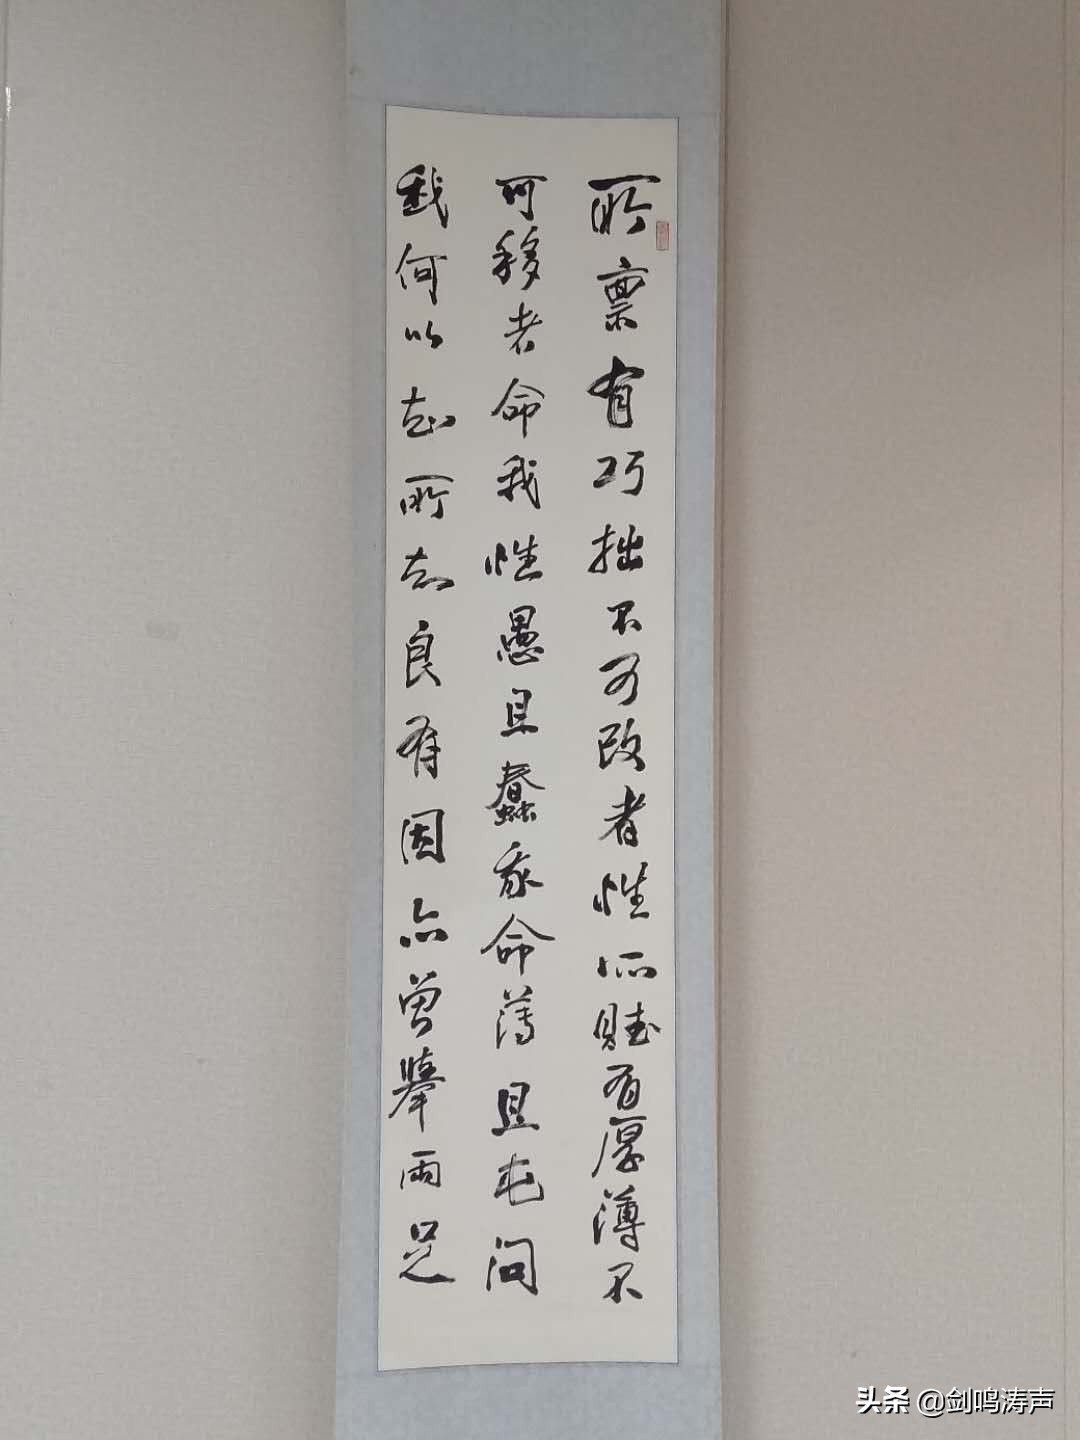 所禀有巧拙不可改者性所赋有厚薄不
可移者命我性愚且蠢我命薄且屯问
我何以知所知良有因亦曾举两足
头条 @剑鸣涛声